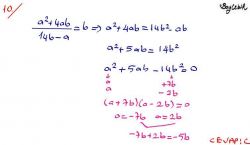 10/
a²+4ab / 14b-a = b ⇒ a²+4ab = 14b²-ab
a²+5ab = 14b²
a²+5ab-14b²=0
a +7b
a -2b
(a+7b)(a-2b)=0
a=-7b a=2b
-7b+2b=-5b
CEVAP: C